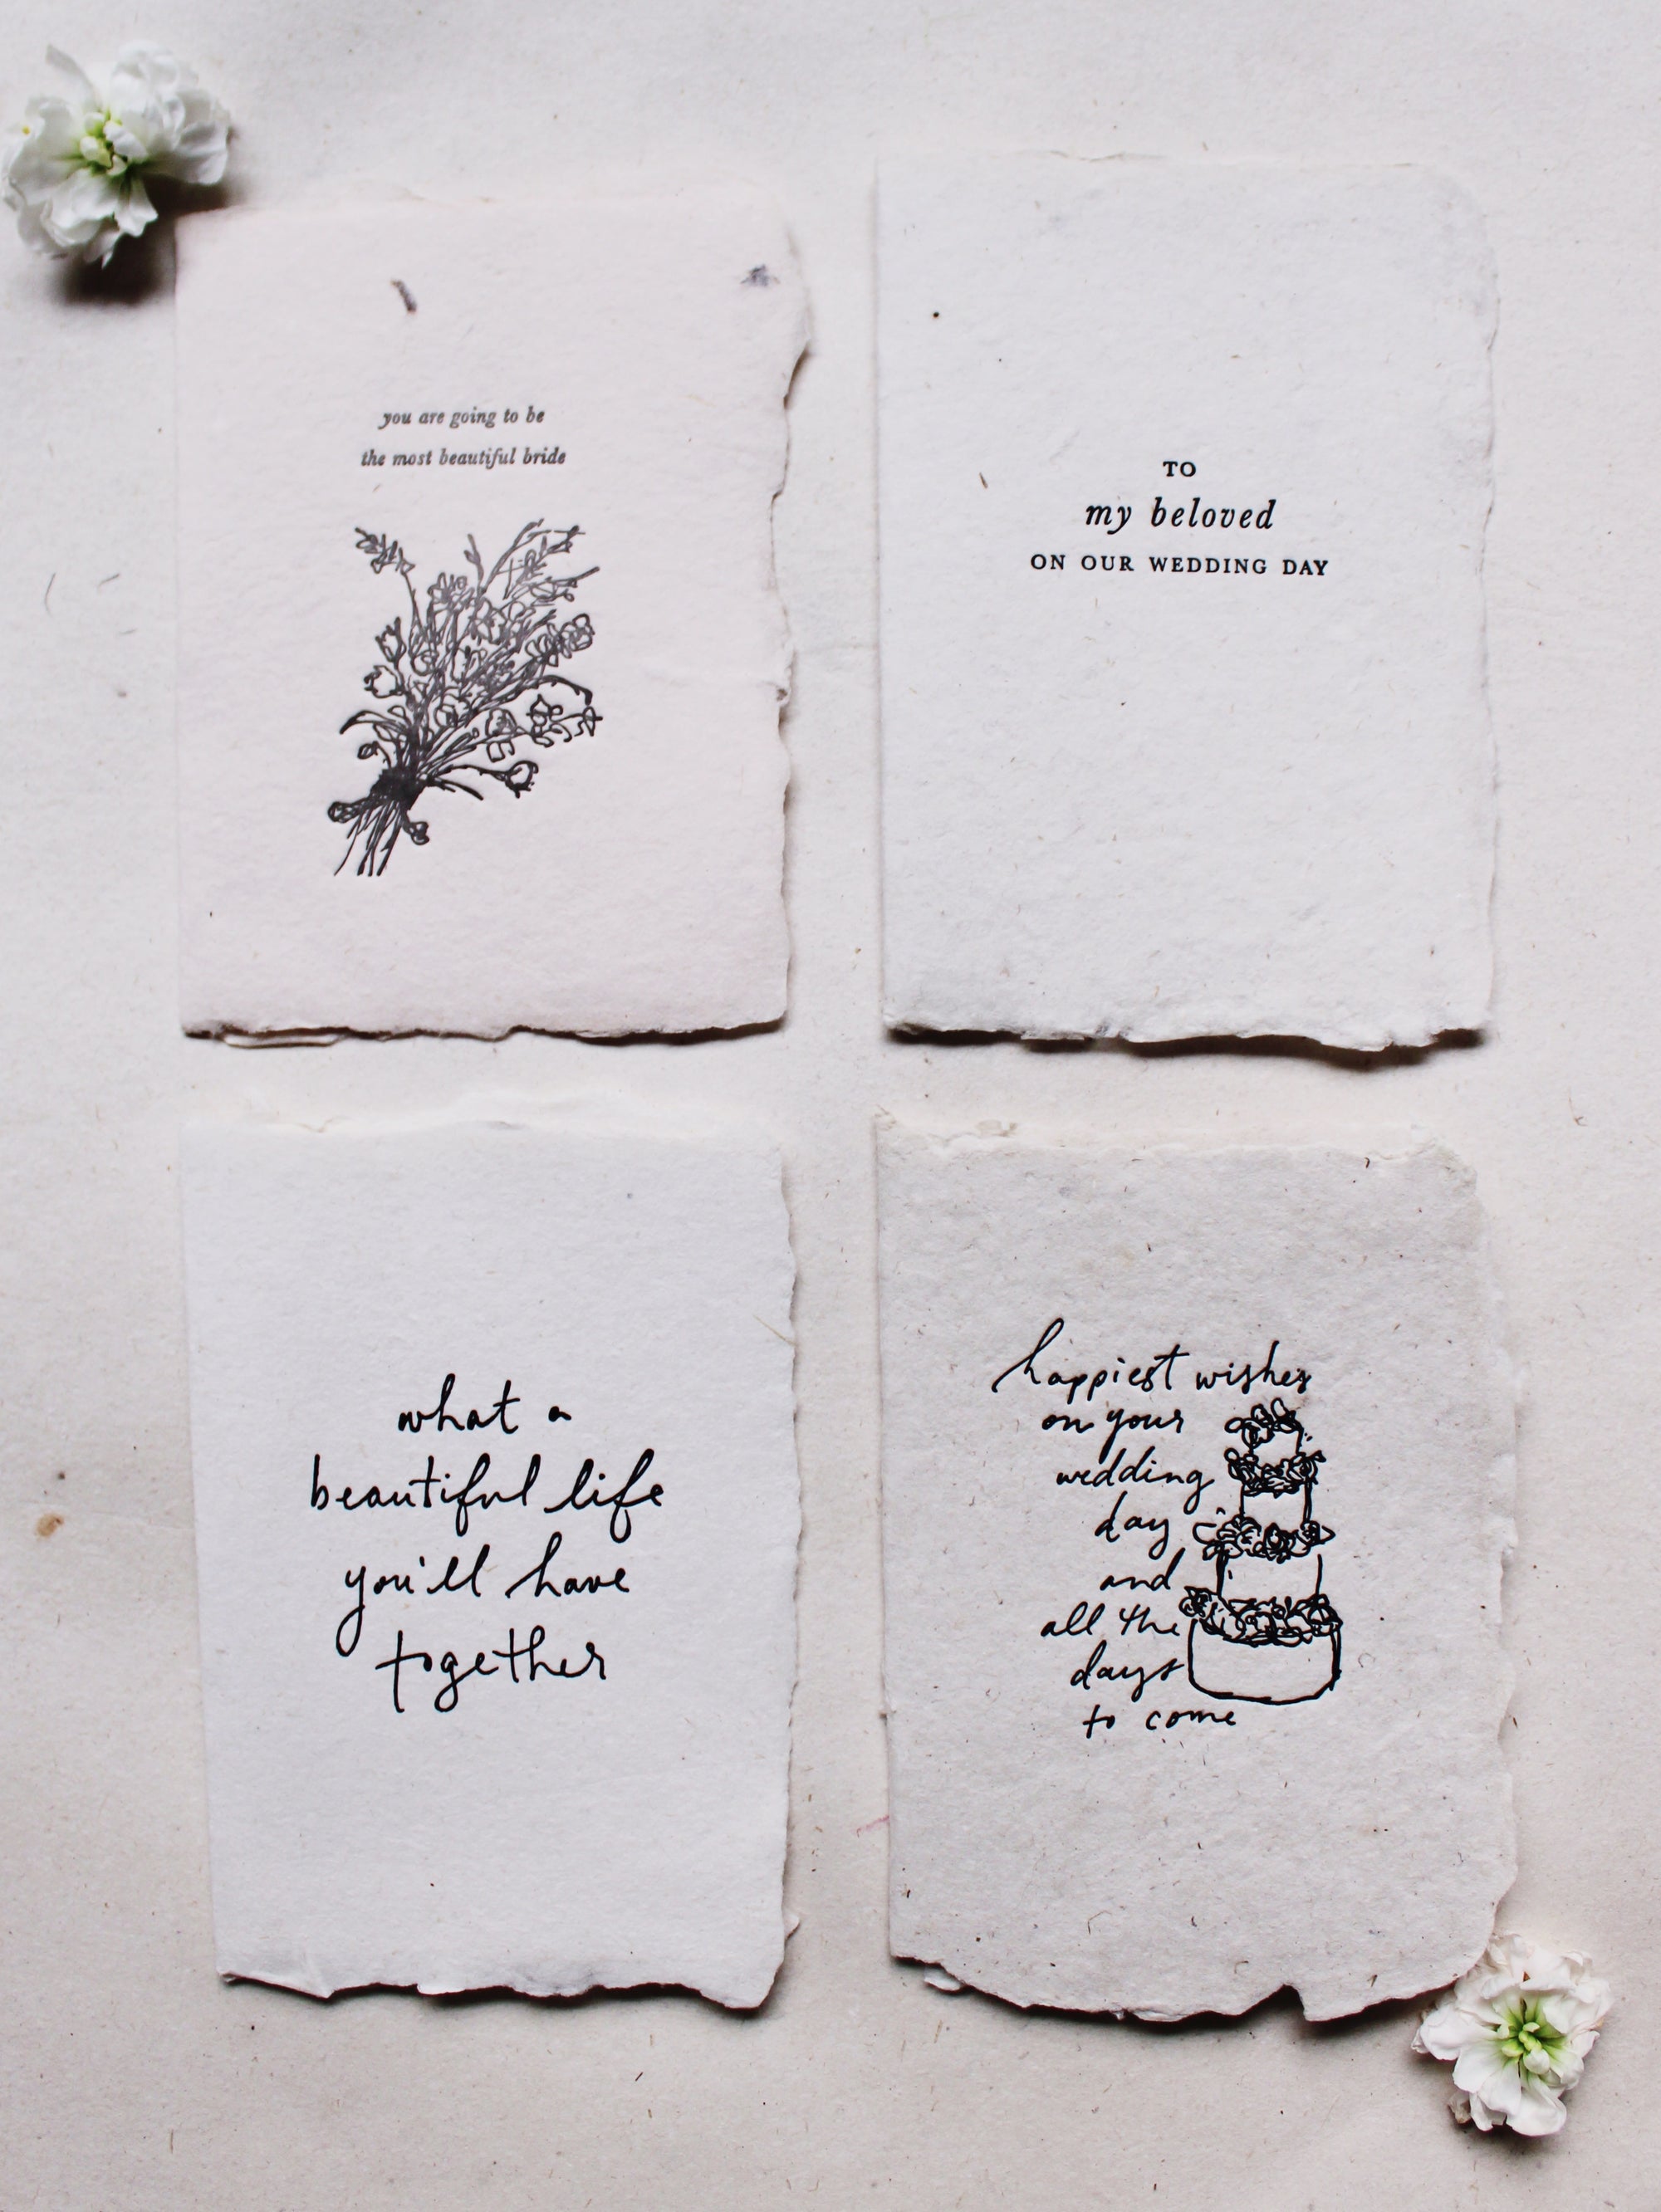 you are going to be
the most beautiful bride
TO
my beloved
ON OUR WEDDING DAY
what a
beautiful life
you'll have
together
happiest wishes
on your
wedding
day
and
all the
days
to come